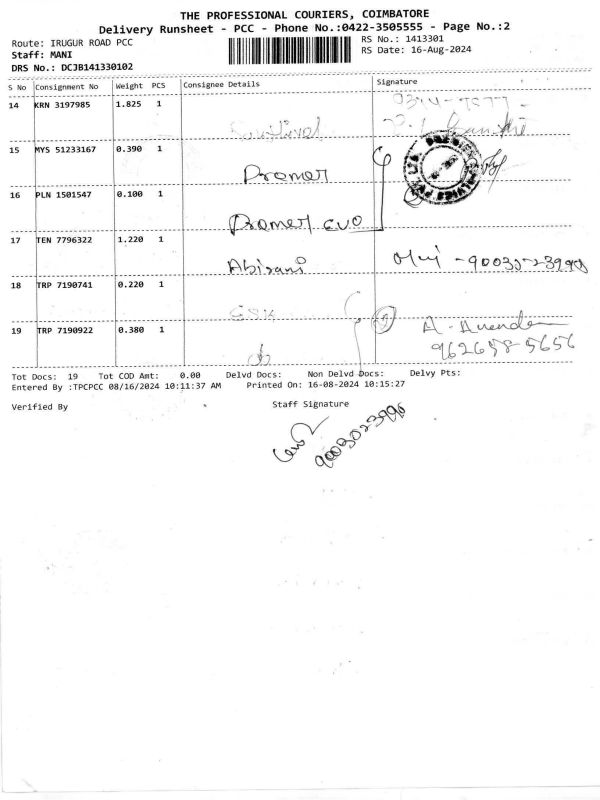 THE PROFESSIONAL COURIERS, COIMBATORE
Delivery Runsheet - PCC - Phone No.:0422-3505555 - Page No.:2
Route: IRUGUR ROAD PCC
RS No.: 1413301
Staff: MANI
RS Date: 16-Aug-2024
DRS No.: DCJB141330102
S No Consignment No Weight PCS Consignee Details Signature
14 KRN 3197985 1.825 1
15 MYS 51233167 0.390 1
Promer
16 PLN 1501547 0.100 1
Promer evo
17 TEN 7796322 1.220 1
Abirami
18 TRP 7190741 0.220 1
19 TRP 7190922 0.380 1
Tot Docs: 19 Tot COD Amt: 0.00 Delvd Docs: Non Delvd Docs: Delvy Pts:
Entered By :TPCPCC 08/16/2024 10:11:37 AM Printed On: 16-08-2024 10:15:27
Verified By Staff Signature
9003023990